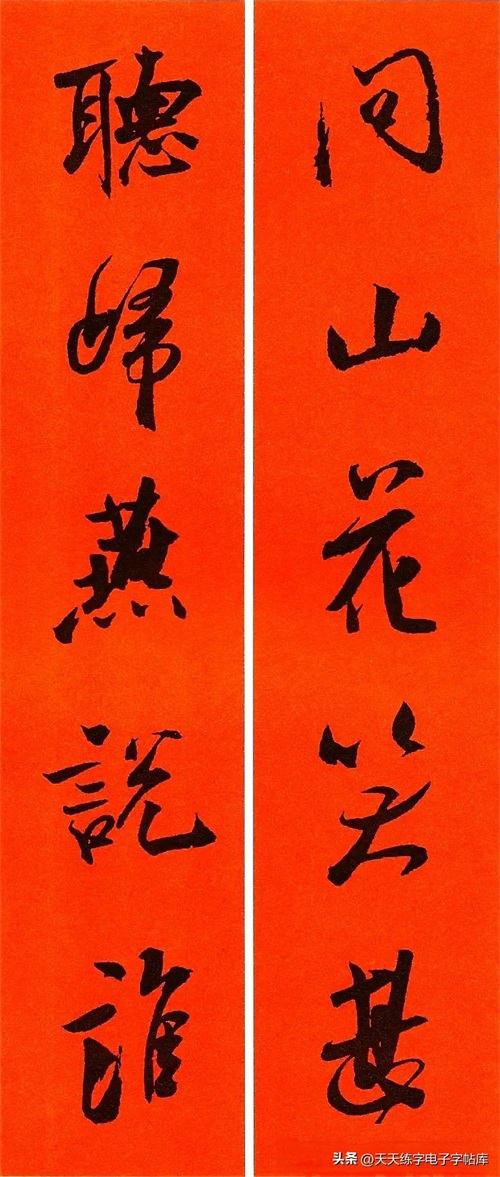 問山花笑甚
聽歸燕說誰
头条 @天天练字电子字帖库